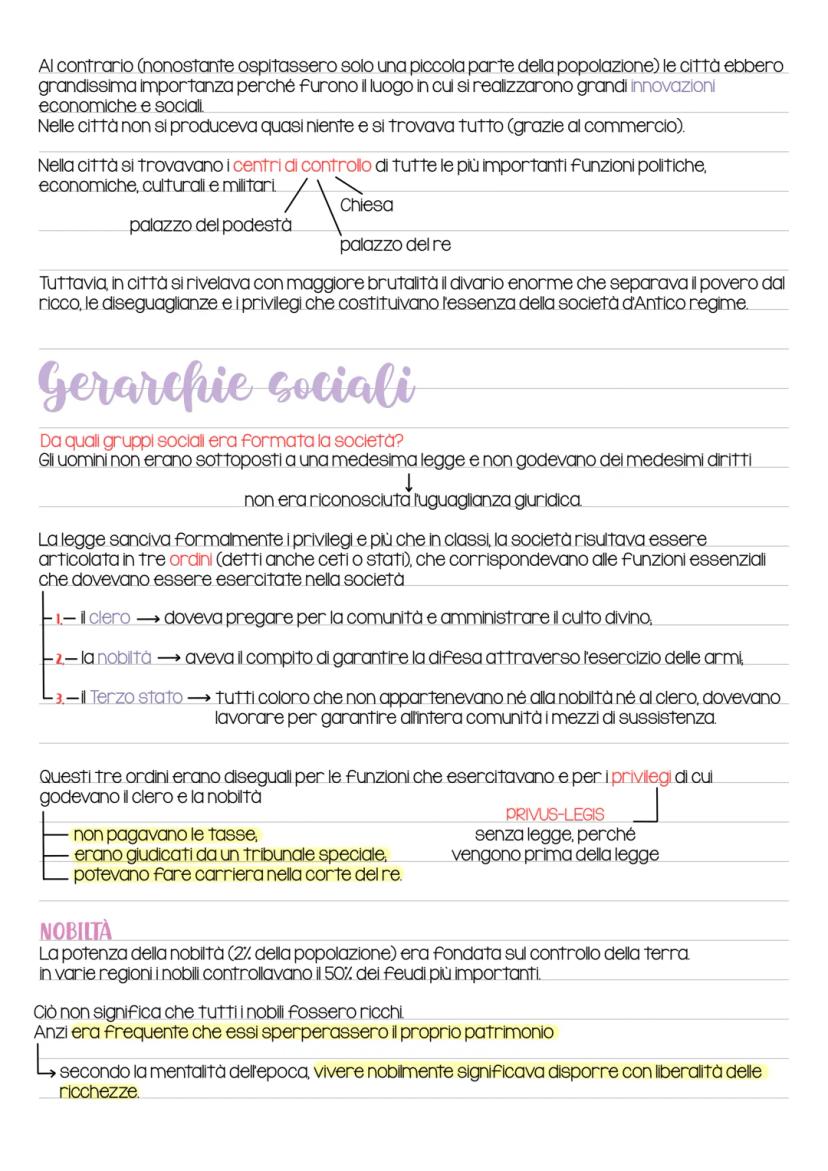 Al contrario (nonostante ospitassero solo una piccola parte della popolazione) le città ebbero
grandissima importanza perché furono il luogo in cui si realizzarono grandi innovazioni
economiche e sociali.
Nelle città non si produceva quasi niente e si trovava tutto (grazie al commercio).
Nella città si trovavano i centri di controllo di tutte le più importanti funzioni politiche,
economiche, culturali e militari.
Chiesa
palazzo del podestà
palazzo del re
Tuttavia, in città si rivelava con maggiore brutalità il divario enorme che separava il povero dal
ricco, le diseguaglianze e i privilegi che costituivano l'essenza della società d'Antico regime.
Gerarchie sociali
Da quali gruppi sociali era formata la società?
Gli uomini non erano sottoposti a una medesima legge e non godevano dei medesimi diritti
↓
non era riconosciuta l'uguaglianza giuridica.
La legge sanciva formalmente i privilegi e più che in classi, la società risultava essere
articolata in tre ordini (detti anche ceti o stati), che corrispondevano alle funzioni essenziali
che dovevano essere esercitate nella società
1. il clero → doveva pregare per la comunità e amministrare il culto divino,
2. la nobiltà → aveva il compito di garantire la difesa attraverso l'esercizio delle armi,
3. il Terzo stato → tutti coloro che non appartenevano né alla nobiltà né al clero, dovevano
lavorare per garantire all'intera comunità i mezzi di sussistenza.
Questi tre ordini erano diseguali per le funzioni che esercitavano e per i privilegi di cui
godevano il clero e la nobiltà
PRIVUS-LEGIS
senza legge, perché
vengono prima della legge
non pagavano le tasse,
erano giudicati da un tribunale speciale,
potevano fare carriera nella corte del re.
NOBILTÀ
La potenza della nobiltà (2% della popolazione) era fondata sul controllo della terra.
in varie regioni i nobili controllavano il 50% dei feudi più importanti.
Ciò non significa che tutti i nobili fossero ricchi.
Anzi era frequente che essi sperperassero il proprio patrimonio
→ secondo la mentalità dell'epoca, vivere nobilmente significava disporre con liberalità delle
ricchezze.